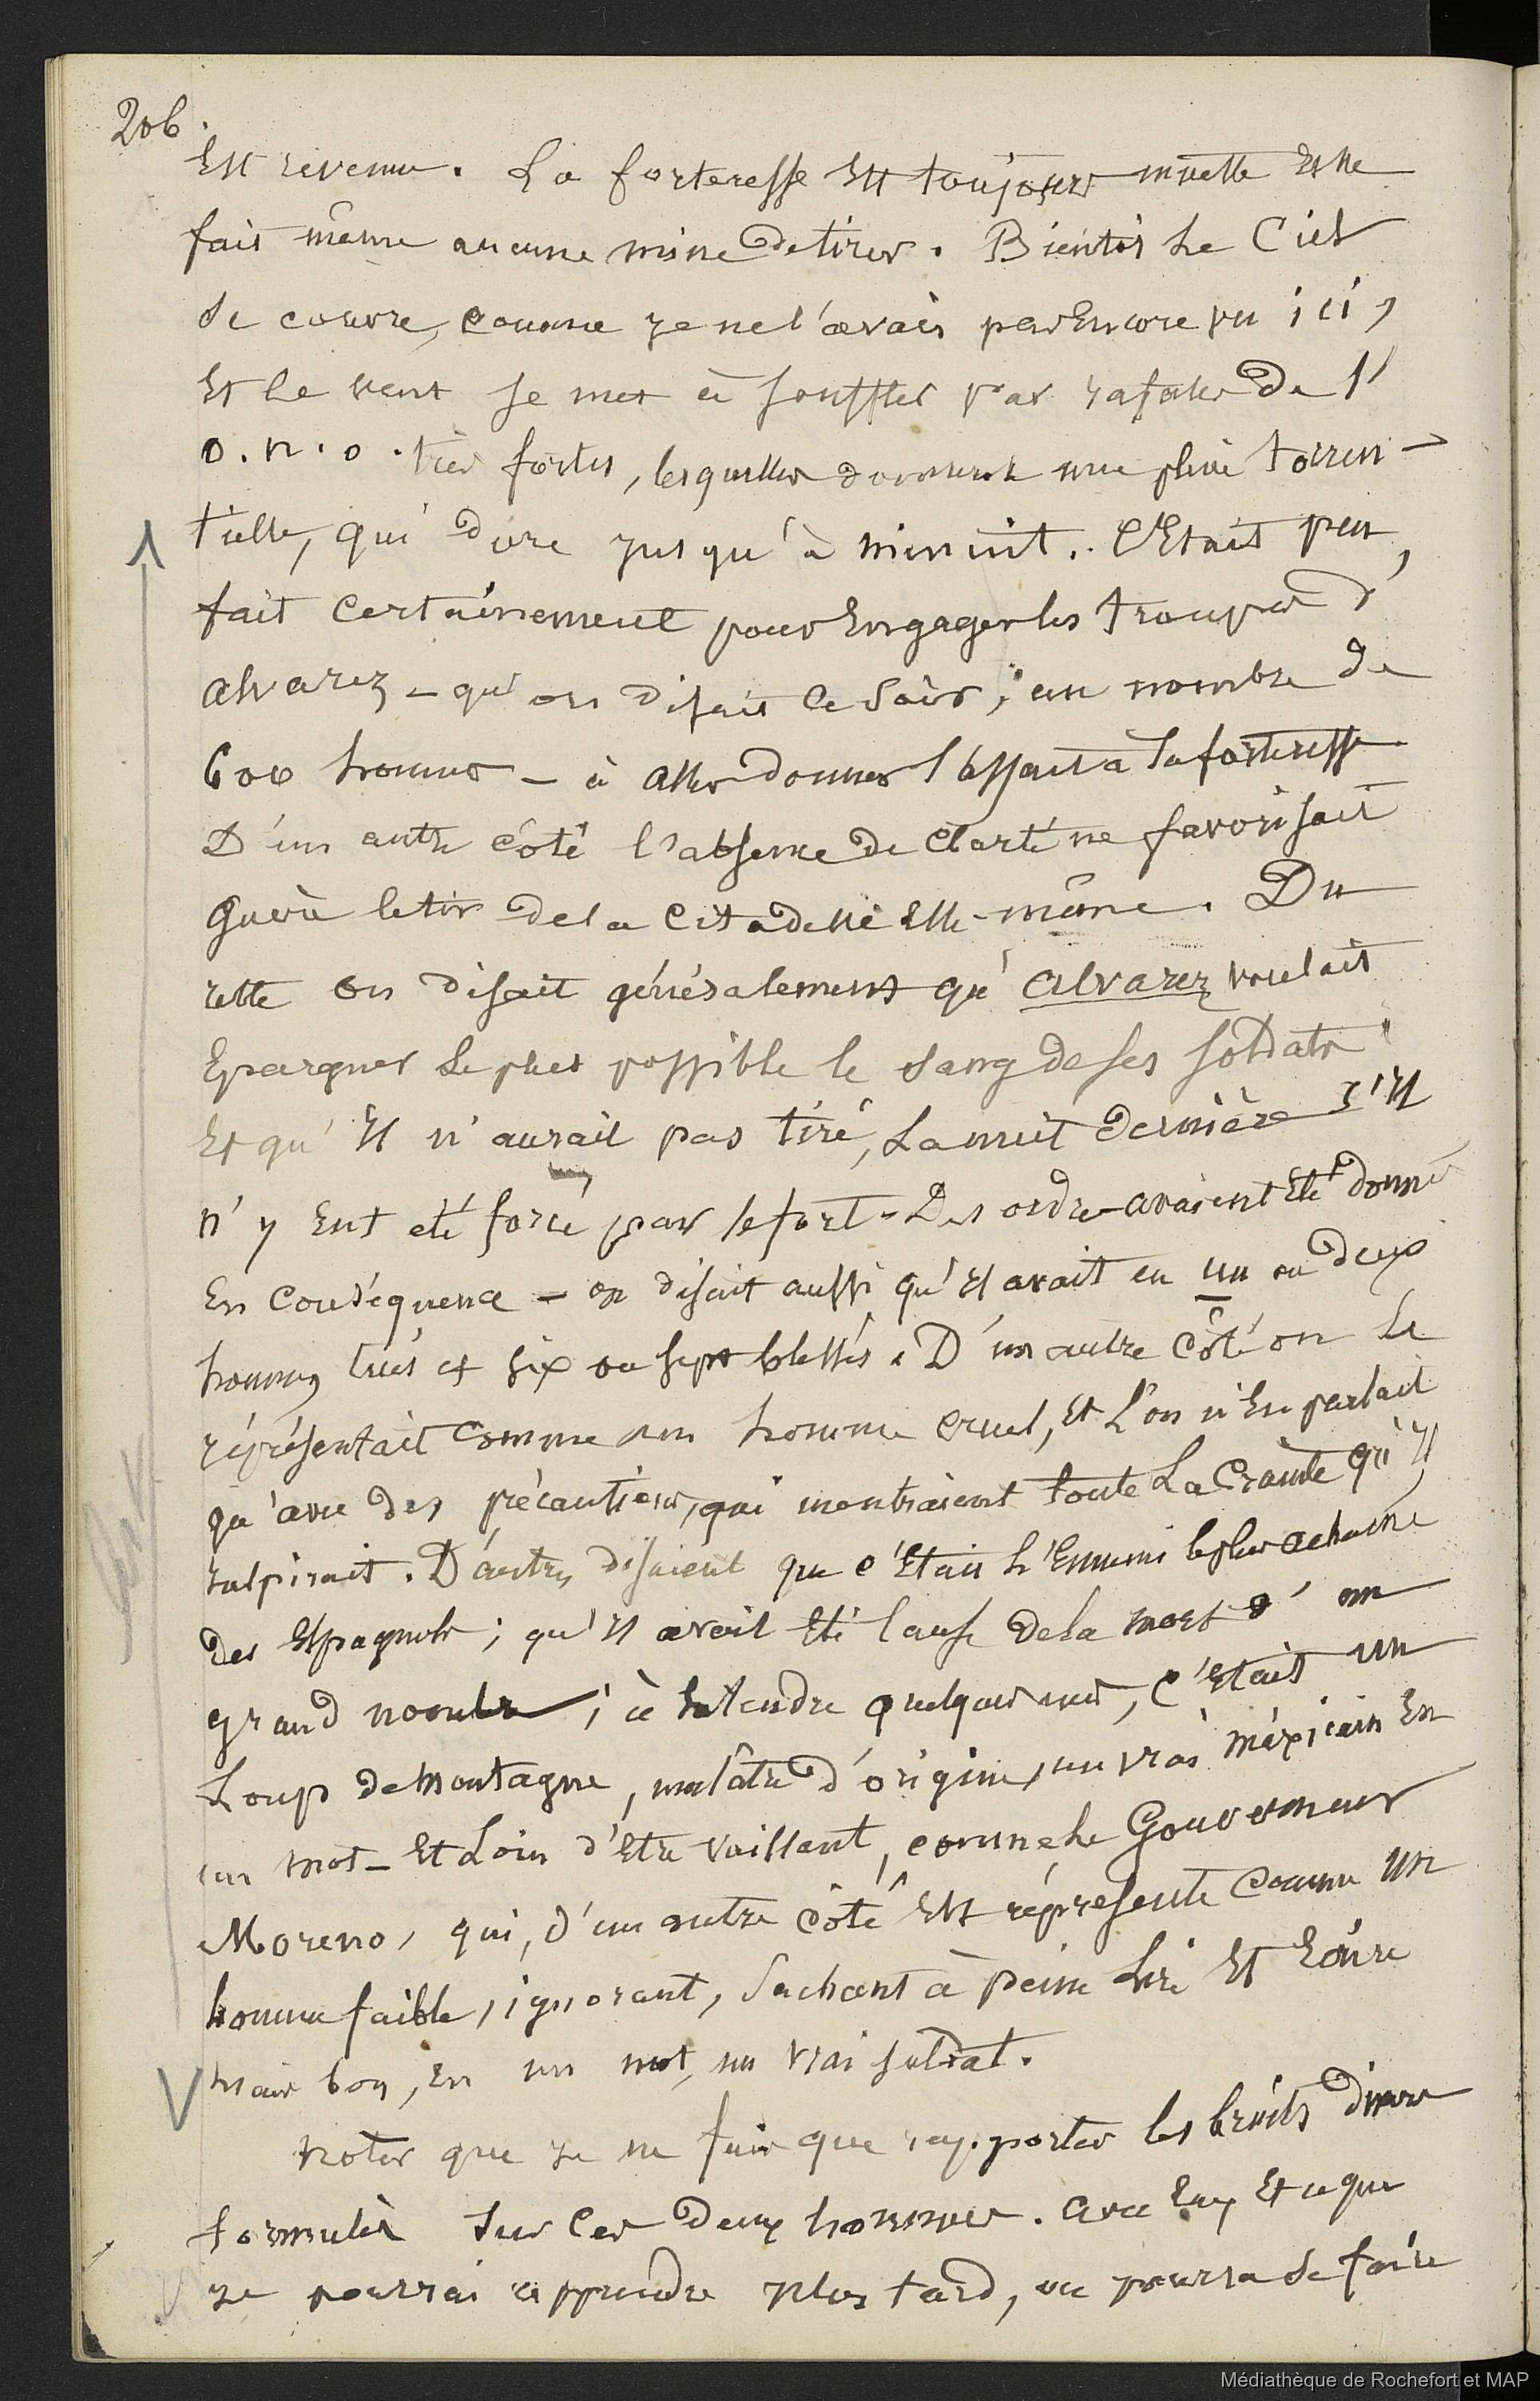 206.
Est revenu. La forteresse Est toujours muette Et ne
fait même aucune mine de tirer. Bientôt Le Ciel
Se couvre, comme je ne l'avais pas Encore vu ici,
Et le vent se met à souffler par rafales de l'
o.n.o. très fortes, lesquelles donnent une pluie torren-
tielle, qui dure jusqu'à minuit.. C'Etait peu
fait certainement pour Engager les troupes d'
Alvarez - qu'on disait ce Soir, au nombre de
600 hommes - à aller donner l'assaut à la forteresse
D'un autre côté l'absence de clarté ne favorisait
guère le tir de la Citadelle Elle-même. Du
reste on disait généralement qu'Alvarez voulait
Epargner Le plus possible le sang de ses soldats
Et qu'Il n'aurait pas tiré, La nuit dernière s'Il
n'y Eut été forcé par le fort - Des ordres avaient Eté donnés
En conséquence - on disait aussi qu'Il avait eu un ou deux
hommes tués et six ou sept blessés. D'un autre côté on Le
réprésentait comme un homme cruel, Et L'on n'En parlait
qu'avec des précautions, qui montraient toute La Crainte qu'Il
inspirait. D'autres disaient que c'Etait L'Ennemi le plus acharné
des Espagnols; qu'Il avait Eté Cause de la mort d'un
grand nombre; à Entendre quelques uns, C'Etait un
Loup de Montagne, mulâtre d'origine, un vrai méxicain En
un mot - Et Loin d'Etre vaillant, comme Le Gouverneur
Moreno, qui, d'un autre côté Est réprésenté Comme un
homme faible, ignorant, Sachant à peine Lire Et Ecrire
mais bon, En un mot, un vrai soldat.
Noter que je ne fais que rapporter les bruits divers
formulés Sur Ces Deux hommes. Avec Eux Et ce que
je pourrai apprendre plus tard, on pourra se faire
Médiathèque de Rochefort et MAP